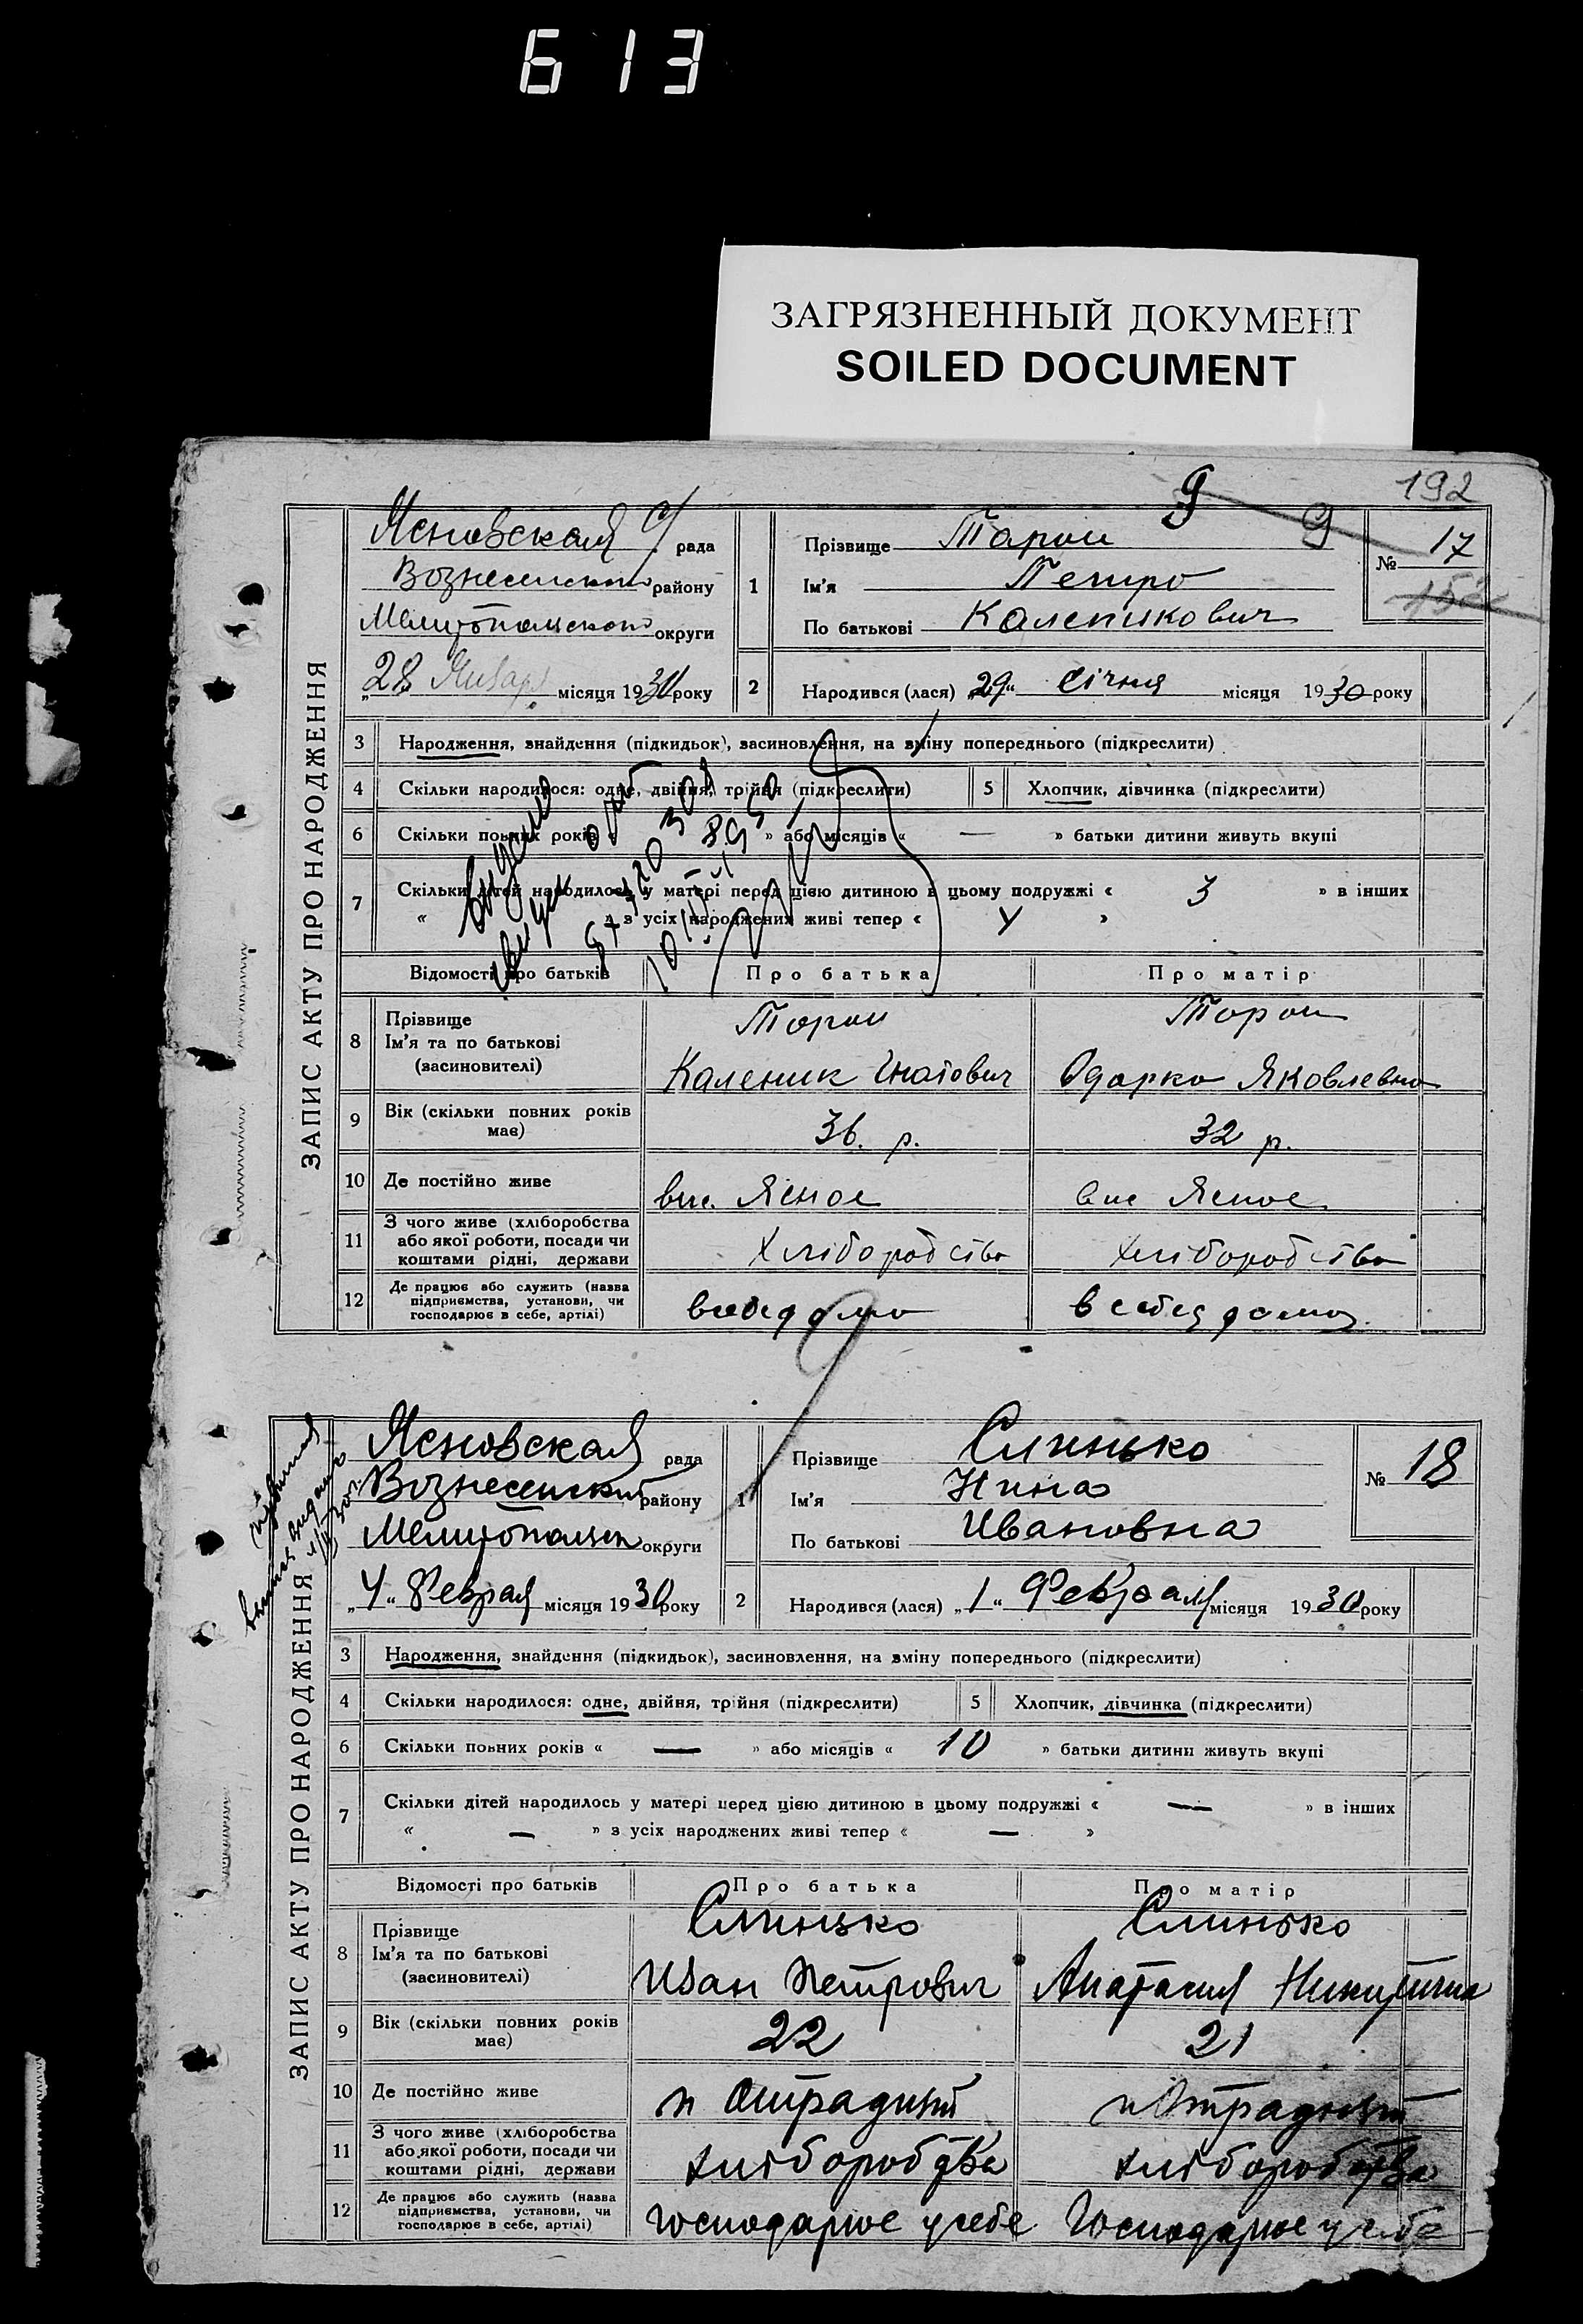 613
ЗАГРЯЗНЕННЫЙ ДОКУМЕНТ
SOILED DOCUMENT
192
9 9
ЗАПИС АКТУ ПРО НАРОДЖЕННЯ
Ясновская с/ рада
Вознесенского району
Мелитопольского округи
„28“ Января місяця 1930 року
1
Прізвище Таран
Ім'я Петро
По батькові Каленикович
№ 17
2 Народився (лася) „29“ Січня місяця 1930 року
3 Народження, знайдення (підкидьок), засиновлення, на зміну попереднього (підкреслити)
4 Скільки народилося: одне, двійня, трійня (підкреслити)
5 Хлопчик, дівчинка (підкреслити)
6 Скільки повних років « » або місяців « — » батьки дитини живуть вкупі
7 Скільки дітей народилось у матері перед цією дитиною в цьому подружжі « 3 » в інших
« » з усіх народжених живі тепер « »
Відомості про батьків Про батька Про матір
8 Прізвище
Ім'я та по батькові
(засиновителі)
Таран
Каленик Гнатович
Таран
Одарка Яковлевна
9 Вік (скільки повних років має) 36. р. 32 р.
10 Де постійно живе вис. Ясное вис Ясное
11 З чого живе (хліборобства
або якої роботи, посади чи
коштами рідні, держави
хліборобство хліборобство
12 Де працює або служить (назва
підприємства, установи, чи
господарює в себе, артілі)
в себе дома в себе дома
ЗАПИС АКТУ ПРО НАРОДЖЕННЯ
Ясновская рада
Вознесенский району
Мелитопольск округи
„4“ Февраля місяця 1930 року
1
Прізвище Слинько
Ім'я Нина
По батькові Ивановна
№ 18
2 Народився (лася) „1“ Февраля місяця 1930 року
3 Народження, знайдення (підкидьок), засиновлення, на зміну попереднього (підкреслити)
4 Скільки народилося: одне, двійня, трійня (підкреслити)
5 Хлопчик, дівчинка (підкреслити)
6 Скільки повних років « — » або місяців « 10 » батьки дитини живуть вкупі
7 Скільки дітей народилось у матері перед цією дитиною в цьому подружжі « — » в інших
« — » з усіх народжених живі тепер « — »
Відомості про батьків Про батька Про матір
8 Прізвище
Ім'я та по батькові
(засиновителі)
Слинько
Иван Петрович
Слинько
Анатасия Никитична
9 Вік (скільки повних років має) 22 21
10 Де постійно живе п Отрадный п Отрадный
11 З чого живе (хліборобства
або якої роботи, посади чи
коштами рідні, держави
хліборобства хліборобства
12 Де працює або служить (назва
підприємства, установи, чи
господарює в себе, артілі)
господарює у себе Господарює у себе